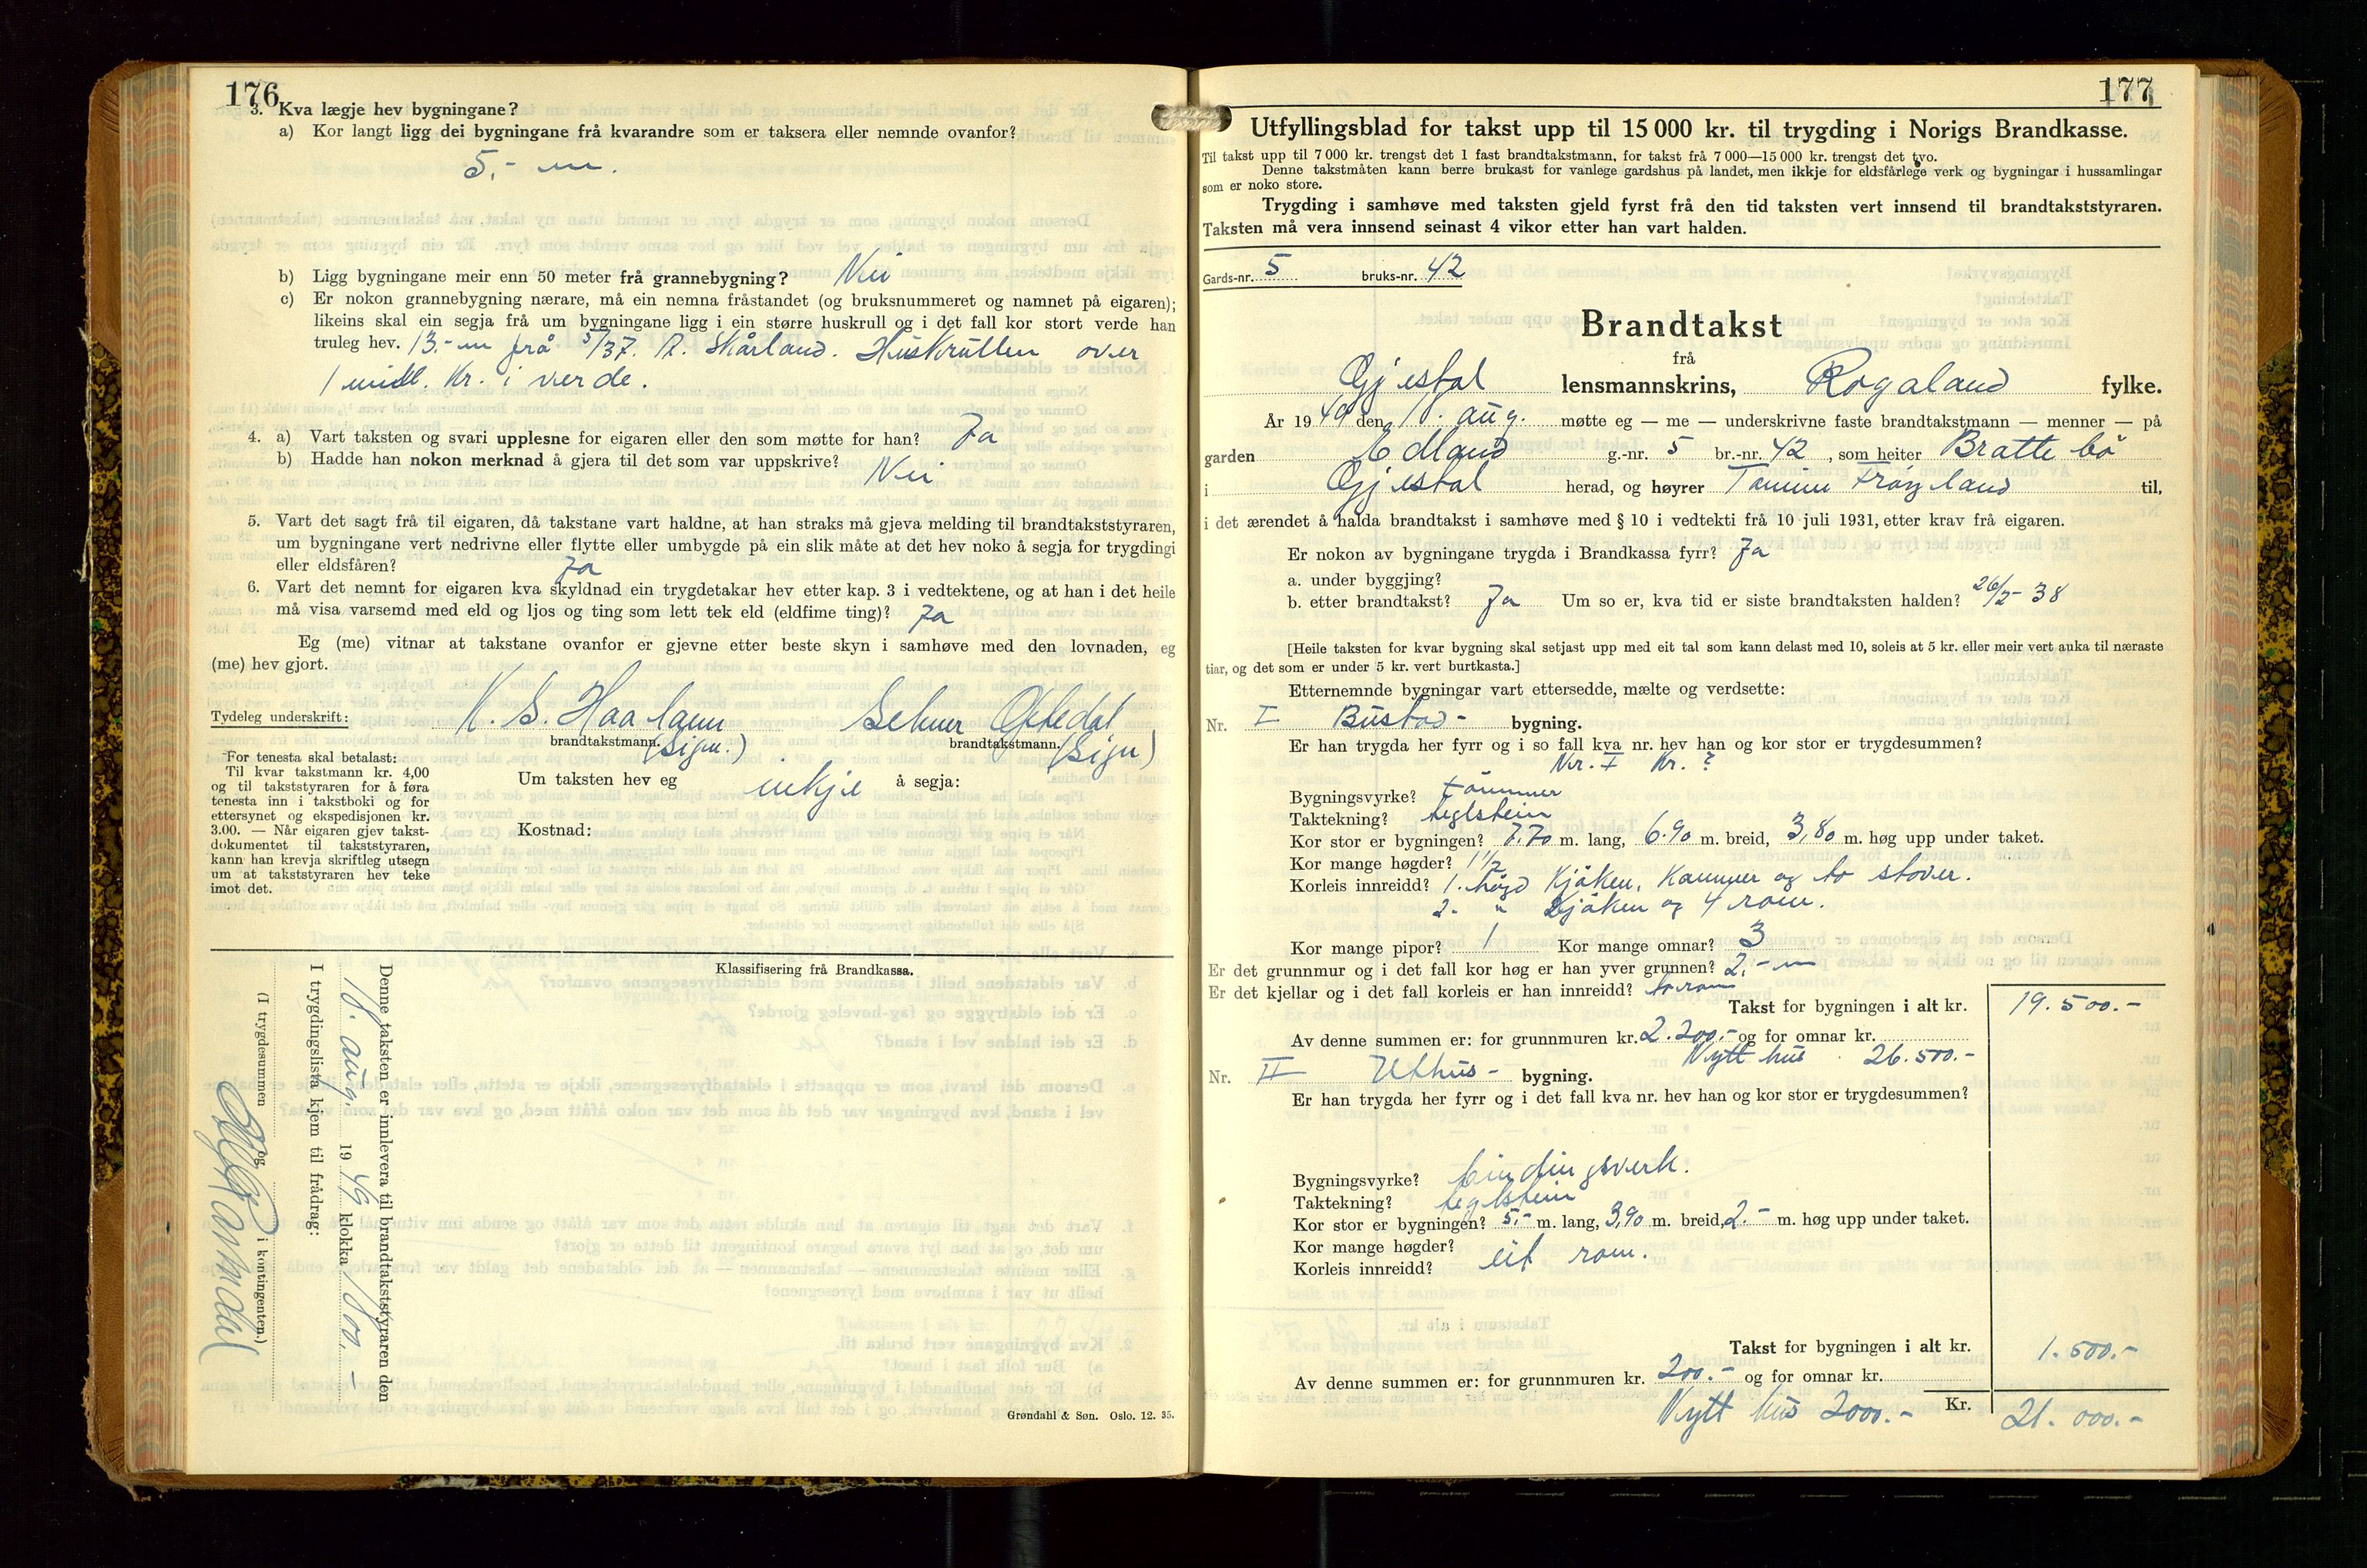 176
3. Kva lægje hev bygningane?
a) Kor langt ligg dei bygningane frå kvarandre som er taksera eller nemnde ovanfor?
5,- m.
b) Ligg bygningane meir enn 50 meter frå grannebygning? Nei
c) Er nokon grannebygning nærare, må ein nemna fråstandet (og bruksnummeret og namnet på eigaren);
likeins skal ein segja frå um bygningane ligg i ein større huskrull og i det fall kor stort verde han
truleg hev. 13.- m frå 5/37. A. Skårland. Huskrullen over
1 mill. Kr. i verde.
4. a) Vart taksten og svari upplesne for eigaren eller den som møtte for han? Ja
b) Hadde han nokon merknad å gjera til det som var uppskrive? Nei
5. Vart det sagt frå til eigaren, då takstane vart haldne, at han straks må gjeva melding til brandtakststyraren,
um bygningane vert nedrivne eller flytte eller umbygde på ein slik måte at det hev noko å segja for trygdingi
eller eldsfåren? Ja
6. Vart det nemnt for eigaren kva skyldnad ein trygdetakar hev etter kap. 3 i vedtektene, og at han i det heile
må visa varsemd med eld og ljos og ting som lett tek eld (eldfime ting)? Ja
Eg (me) vitnar at takstane ovanfor er gjevne etter beste skyn i samhøve med den lovnaden, eg
(me) hev gjort.
Tydeleg underskrift: K. S. Haaland Selmer Oftedal
brandtakstmann. (Sign.) brandtakstmann. (Sign)
For tenesta skal betalast:
Til kvar takstmann kr. 4,00
og til takststyraren for å føra
tenesta inn i takstboki og for
ettersynet og ekspedisjonen kr.
3.00. — Når eigaren gjev takst-
dokumentet til takststyraren,
kann han krevja skriftleg utsegn
um at takststyraren hev teke
imot det.
Um taksten hev eg inkje å segja:
Kostnad:
Klassifisering frå Brandkassa.
Denne taksten er innlevera til brandtakststyraren den
18. aug. 19 49 klokka 1800.-
I trygdingslista kjem til frådrag:
(I trygdesummen og i kontingenten.)
Grøndahl & Søn. Oslo. 12. 35.
177
Utfyllingsblad for takst upp til 15 000 kr. til trygding i Norigs Brandkasse.
Til takst upp til 7 000 kr. trengst det 1 fast brandtakstmann, for takst frå 7 000—15 000 kr. trengst det tvo.
Denne takstmåten kann berre brukast for vanlege gardshus på landet, men ikkje for eldsfårlege verk og bygningar i hussamlingar
som er noko store.
Trygding i samhøve med taksten gjeld fyrst frå den tid taksten vert innsend til brandtakststyraren.
Taksten må vera innsend seinast 4 vikor etter han vart halden.
Gards-nr. 5 bruks-nr. 42
Brandtakst
frå
Gjestal lensmannskrins, Rogaland fylke.
År 19 49 den aug. møtte eg — me — underskrivne faste brandtakstmann — menner — på
garden Edland g.-nr. 5 br.-nr. 42, som heiter Brattebø
i Gjestal herad, og høyrer Frøyland til,
i det ærendet å halda brandtakst i samhøve med § 10 i vedtekti frå 10 juli 1931, etter krav frå eigaren.
Er nokon av bygningane trygda i Brandkassa fyrr? Ja
a. under byggjing?
b. etter brandtakst? Ja Um so er, kva tid er siste brandtaksten halden? 26/2- 38
[Heile taksten for kvar bygning skal setjast upp med eit tal som kann delast med 10, soleis at 5 kr. eller meir vert auka til næraste
tiar, og det som er under 5 kr. vert burtkasta.]
Etternemnde bygningar vart ettersedde, mælte og verdsette:
Nr. I Bustad- bygning.
Er han trygda her fyrr og i so fall kva nr. hev han og kor stor er trygdesummen?
Nr. I Kr. ?
Bygningsvyrke? tømmer
Taktekning? teglstein
Kor stor er bygningen? 7.70 m. lang, 6.90 m. breid, 3,80 m. høg upp under taket.
Kor mange høgder? 1 1/2
Korleis innreidd? 1. høgd Kjøken, Kammer og to stover.
2. " Kjøken og 4 rom.
Kor mange pipor? 1 Kor mange omnar? 3
Er det grunnmur og i det fall kor høg er han yver grunnen? 2,- m
Er det kjellar og i det fall korleis er han innreidd? to rom
Takst for bygningen i alt kr. 19.500.-
Av denne summen er: for grunnmuren kr. 2.200.- og for omnar kr.
Nytt hus 26.500.-
Nr. II Uthus- bygning.
Er han trygda her fyrr og i det fall kva nr. hev han og kor stor er trygdesummen?
Bygningsvyrke? bindingsverk.
Taktekning? teglstein
Kor stor er bygningen? 5,- m. lang, 3,90 m. breid, 2.- m. høg upp under taket.
Kor mange høgder?
Korleis innreidd? eit rom.
Takst for bygningen i alt kr. 1.500.-
Av denne summen er: for grunnmuren kr. 200.- og for omnar kr.
Nytt hus 2000.- Kr. 21.000.-